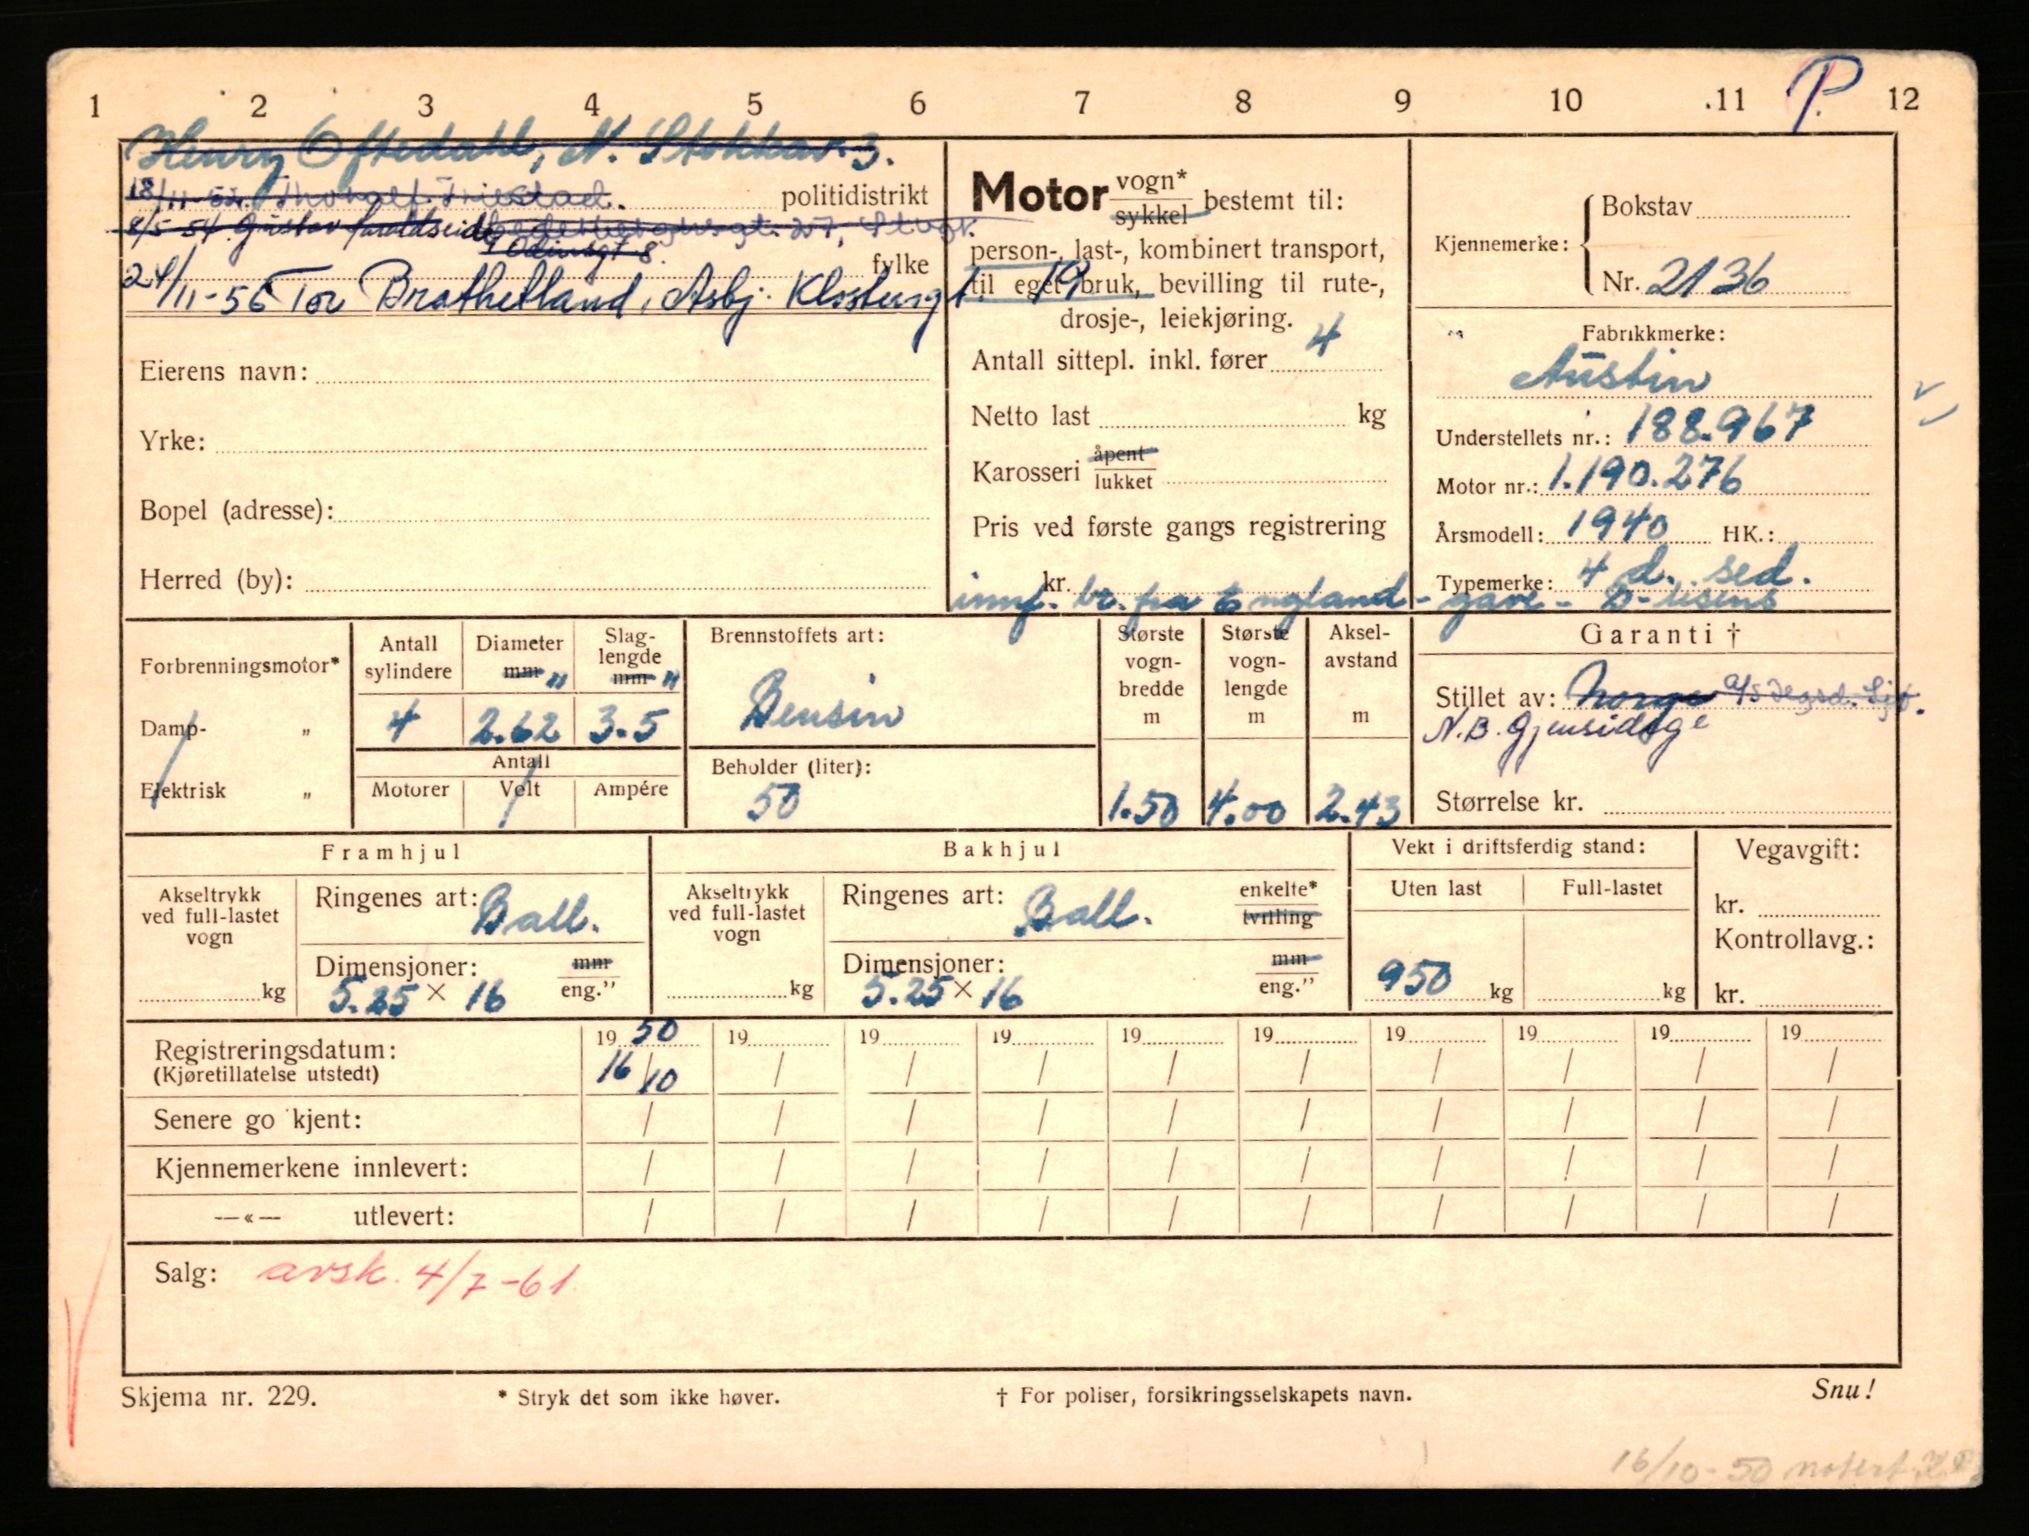 1 2 3 4 5 6 7 8 9 10 11 P. 12
Henry Oftedahl, N. Stokkav. 3.
18/11-52. Thoralf Friestad. politidistrikt
8/5 54 Gustav 257,
Odinsgt 8. fylke
24/11-56 Tor Brathetland, Asbj. Klostersgt 19
Eierens navn:
Yrke:
Bopel (adresse):
Herred (by):
Motor vogn* sykkel bestemt til:
person-, last-, kombinert transport,
til eget bruk, bevilling til rute-,
drosje-, leiekjøring.
Antall sittepl. inkl. fører 4
Netto last kg
Karosseri åpent lukket
Pris ved første gangs registrering
kr.
innf. br. fra England - gave - D-lisens
Kjennemerke: Bokstav
Nr. 2136
Fabrikkmerke:
Austin
Understellets nr.: 188.967
Motor nr.: 1.190.276
Årsmodell: 1940 HK.:
Typemerke: 4 d. sed.
Forbrenningsmotor*
Damp- „
Elektrisk „
Antall sylindere
4
Diameter mm "
2.62
Slaglengde mm "
3.5
Antall
Motorer Volt Ampére
Brennstoffets art:
Bensin
Beholder (liter):
50
Største vogn-bredde m
1.50
Største vogn-lengde m
4.00
Aksel-avstand m
2.43
Garanti †
Stillet av: Norge
N.B. Gjensidige
Størrelse kr.
Framhjul
Akseltrykk ved full-lastet vogn
kg
Ringenes art: Ball.
Dimensjoner: mm eng."
5.25 × 16
Bakhjul
Akseltrykk ved full-lastet vogn
kg
Ringenes art: Ball. enkelte* tvilling
Dimensjoner: mm eng."
5.25 × 16
Vekt i driftsferdig stand:
Uten last Full-lastet
950 kg kg
Vegavgift:
kr.
Kontrollavg.:
kr.
Registreringsdatum: 19 50 19 19 19 19 19 19 19 19 19
(Kjøretillatelse utstedt) 16/10 / / / / / / / / /
Senere go kjent: / / / / / / / / / /
Kjennemerkene innlevert: / / / / / / / / / /
—«— utlevert: / / / / / / / / / /
Salg: avsk. 4/7-61
Skjema nr. 229. * Stryk det som ikke høver. † For poliser, forsikringsselskapets navn. Snu!
16/10-50 notert